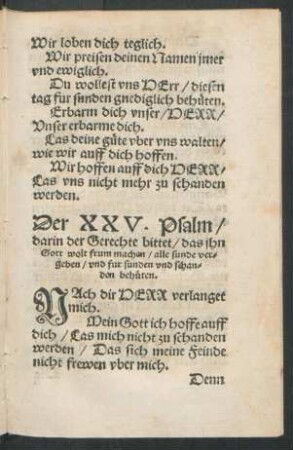 Wir loben dich teglich.
Wir preisen deinen Namen jmer
vnd ewiglich.
Du wollest vns HErr / diesen
tag fur sunden gnediglich behüten.
Erbarm dich vnser / HERR /
Vnser erbarme dich.
Las deine güte vber vns walten /
wie wir auff dich hoffen.
Wir hoffen auff dich HERR /
Las vns nicht mehr zu schanden
werden.
Der XXV. Psalm /
darin der Gerechte bittet / das jhn
Gott wolt frum machen / alle sunde ver-
geben / vnd fur sunden vnd schan-
den behüten.
NAch dir HERR verlanget
mich.
Mein Gott ich hoffe auff
dich / Las mich nicht zu schanden
werden / Das sich meine Feinde
nicht frewen vber mich.
Denn